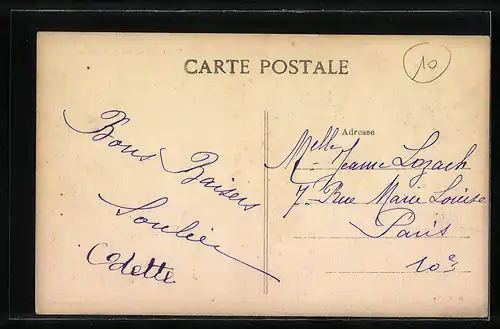 CARTE POSTALE
10
Bons
Baisers
Soulier
Odette
Adresse
Melle Jeanne Lozach
7 Rue Marie Louise
Paris
10e